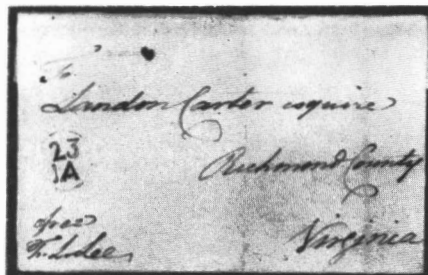 To
Landon Carter esquire
23
IA
Richmond County
free
Virginia